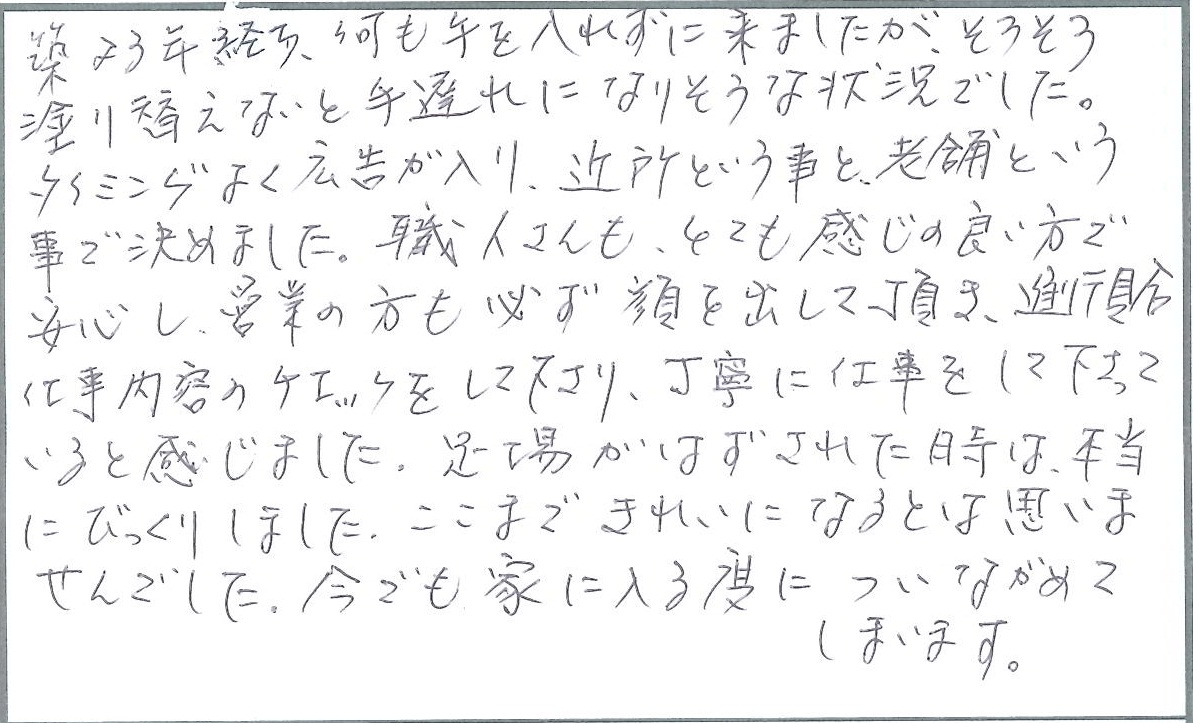 築23年経ち、何も手を入れずに来ましたが、そろそろ
塗り替えないと手遅れになりそうな状況でした。
タイミングよく広告が入り、近所という事と、老舗という
事で決めました。職人さんも、とても感じの良い方で
安心し、営業の方も必ず顔を出して頂き、進行具合
仕事内容のチェックをして下さり、丁寧に仕事をして下さって
いると感じました。足場がはずされた時は、本当
にびっくりしました。ここまできれいになるとは思いま
せんでした。今でも家に入る度についながめて
しまいます。